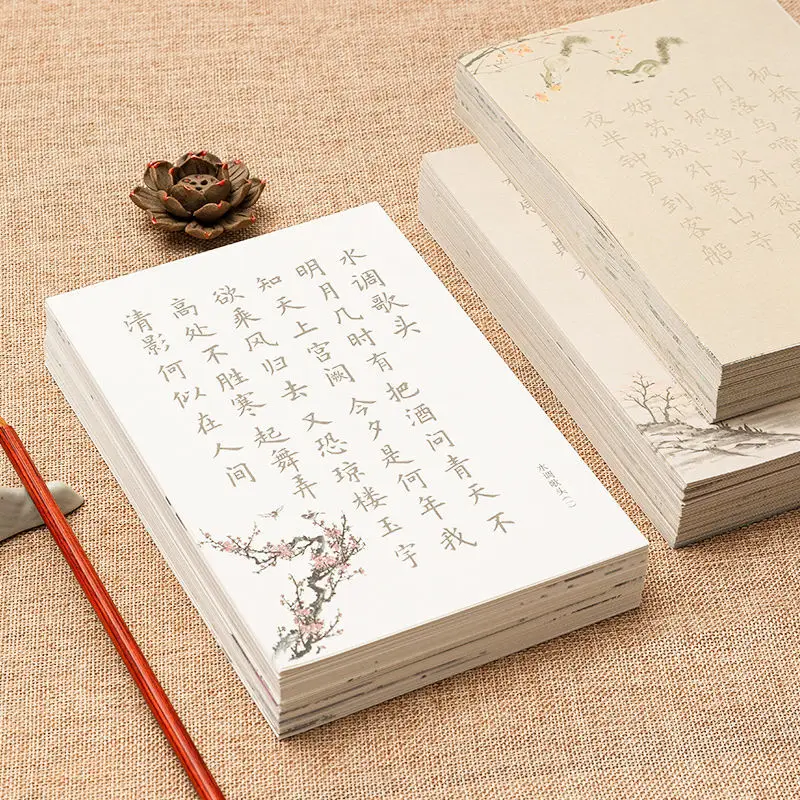 水调歌头
明月几时有 把酒问青天 不
知天上宫阙 今夕是何年 我
欲乘风归去 又恐琼楼玉宇
高处不胜寒 起舞弄
清影 何似在人间
水调歌头(一)
枫桥
月落乌啼
江枫渔火对愁
姑苏城外寒山寺
夜半钟声到客船